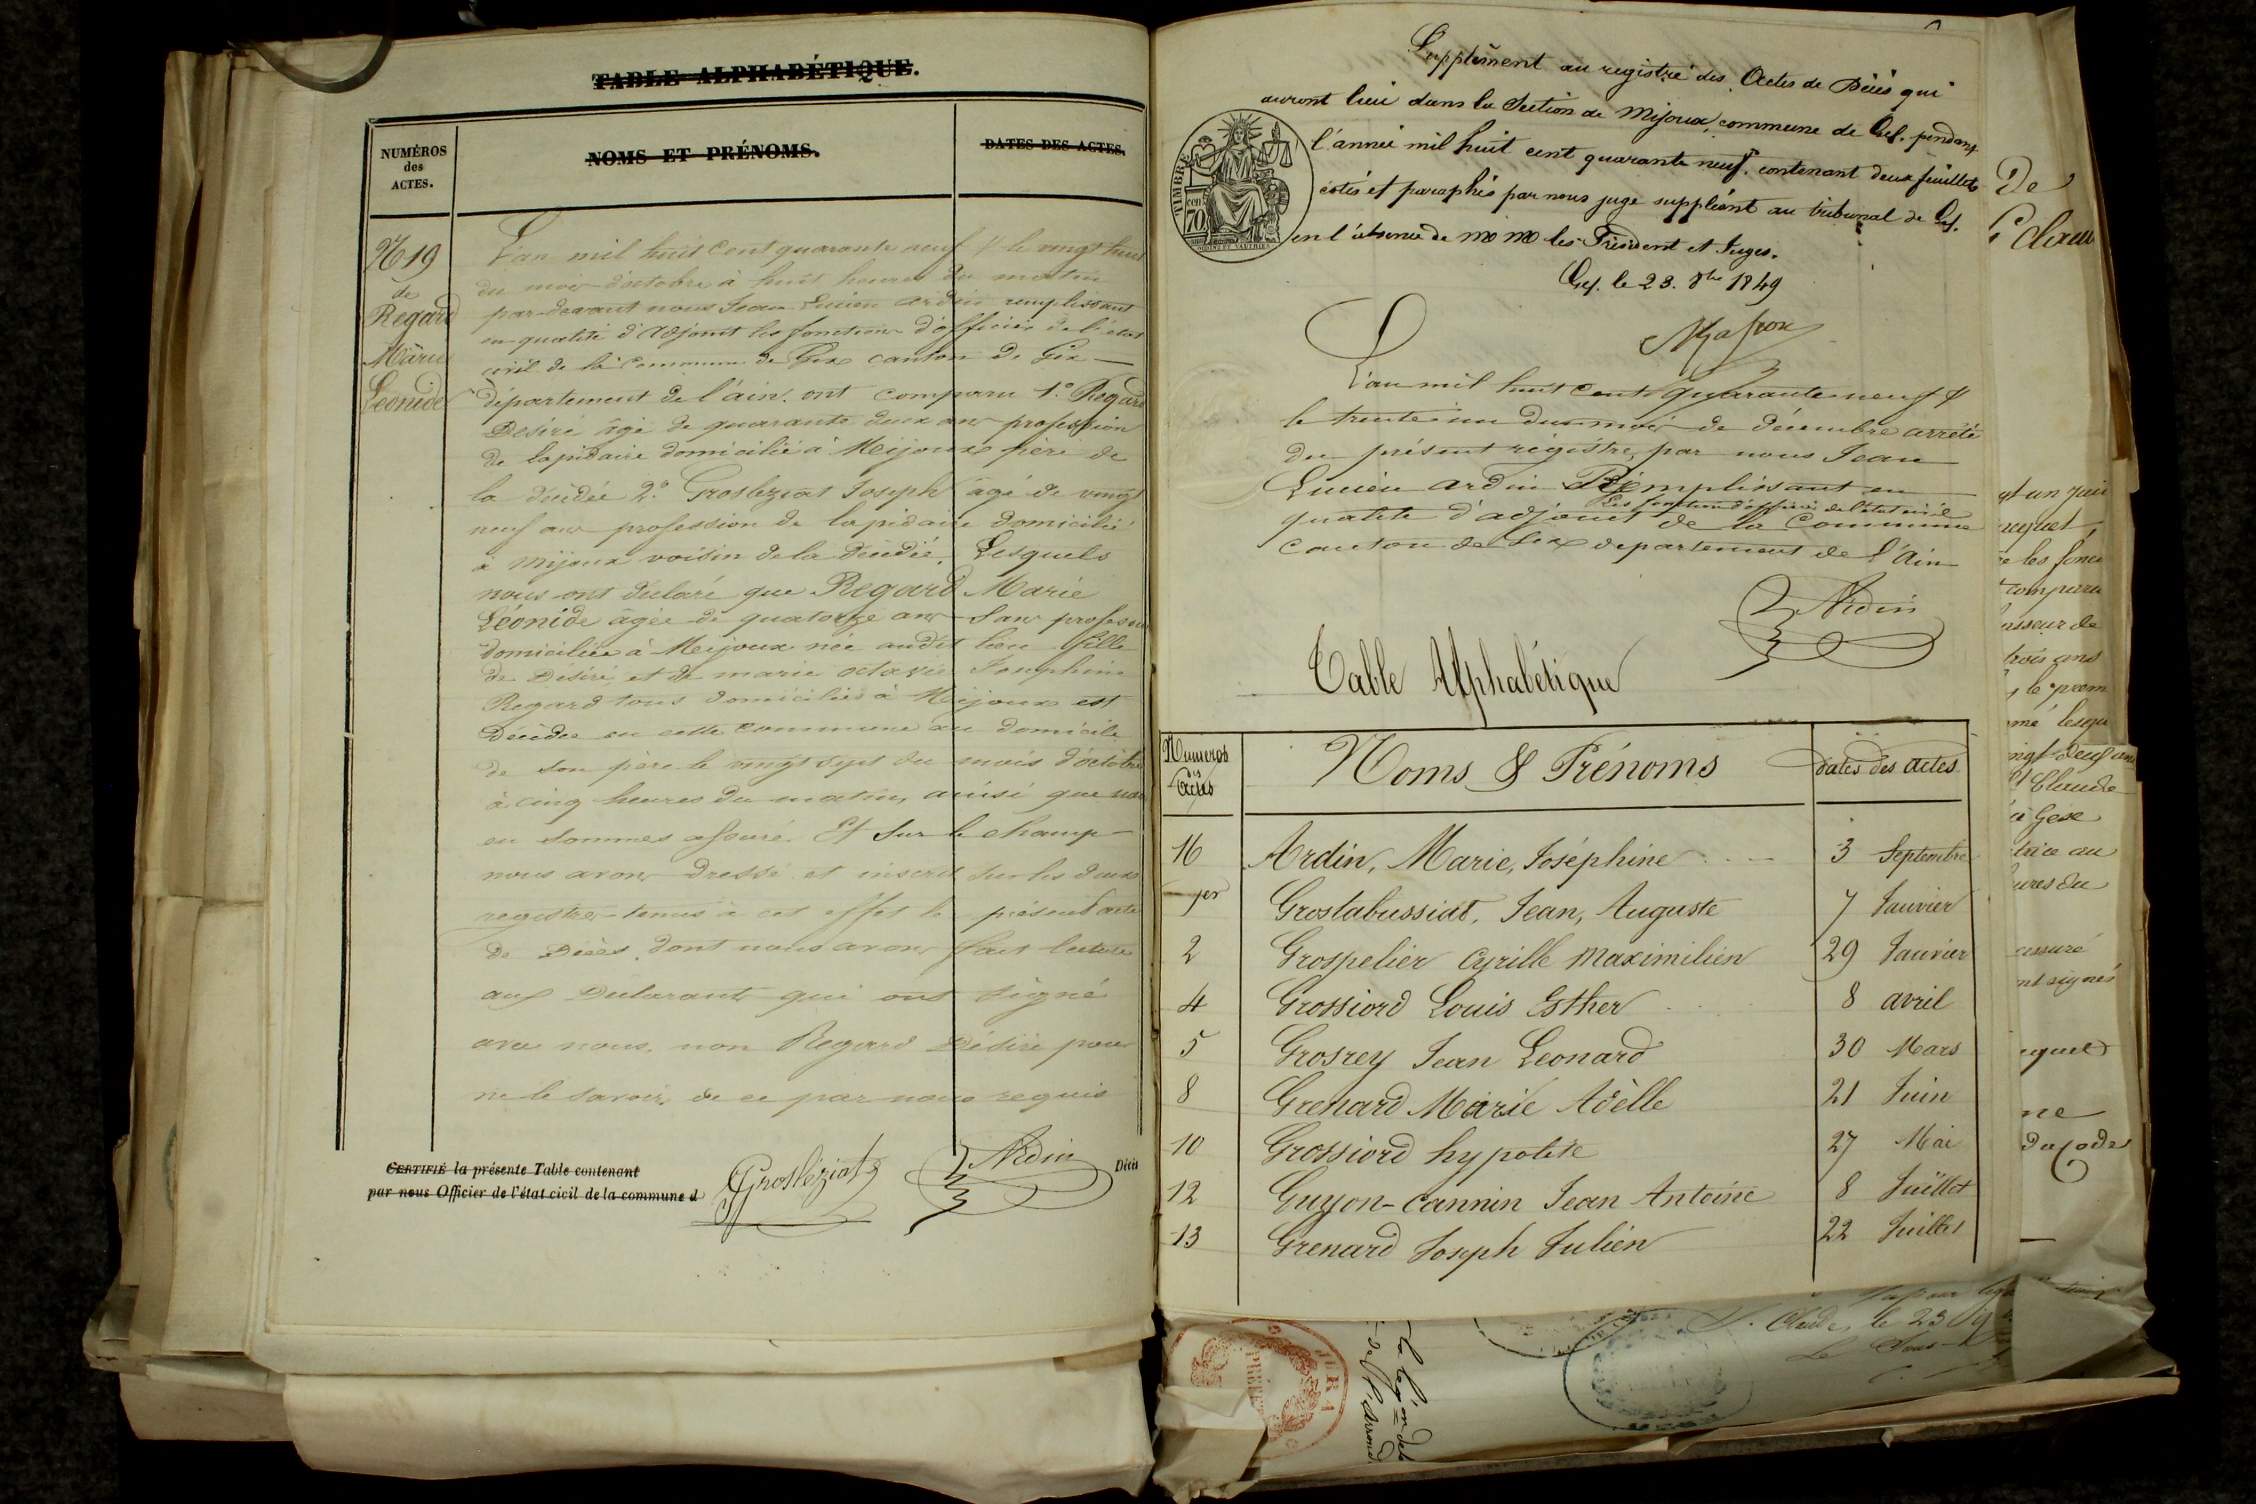 TABLE ALPHABÉTIQUE.
NUMÉROS
des
ACTES.
NOMS ET PRÉNOMS.
DATES DES ACTES.
N 19
de
Regard
Marie
Leonide
L'an mil huit cent quarante neuf & le vingt huit
du mois d'octobre à huit heures du matin
par-devant nous Jean Lucien Ardin remplissant
en qualité d'Adjoint les fonctions d'officier de l'état
civil de la Commune de Gex canton de Gex
département de l'ain. ont comparu 1.º Regard
Désiré âgé de quarante deux ans profession
de lapidaire domicilié à Meijoux père de
la décédée 2.º Grosleziat Joseph âgé de vingt
neuf ans profession de lapidaire domicilié
à Mijoux voisin de la décédée. Lesquels
nous ont déclaré que Regard Marie
Léonide âgée de quatorze ans sans profession
domiciliée à Meijoux née audit lieu fille
de Désiré et de marie octavie Josephine
Regard tous domiciliés à Meijoux est
Décédée en cette commune au domicile
de son père le vingt sept du mois d'octobre
à cinq heures du matin, ainsi que nous
en sommes assuré. Et sur le champ
nous avons dressé et inscrit sur les deux
registres tenus à cet effet le présent acte
de Décès, dont nous avons fait lecture
aux Déclarants qui ont signé
avec nous. non Regard Désiré pour
ne le savoir, de ce par nous requis
CERTIFIÉ la présente Table contenant
Décès
par nous Officier de l'état civil de la commune d
Grosleziat
Ardin
Supplément au registre des Actes de Décès qui
auront lieu dans la Section de Mijoux, commune de Gex. pendant
l'année mil huit cent quarante neuf. contenant deux feuillets
cotés et paraphés par nous juge suppléant au tribunal de Gex.
en l'absence de MM les Président et Juges.
Gex. le 23. 8bre 1849
TIMBRE
cen
70
L'an mil huit Cent Quarante neuf &
le trente un du mois de décembre arrêté
du présent régistre, par nous Jean
Lucien Ardin Remplissant en
les fonctions d'officier de l'état civil
qualité d'adjoint de la Commune
canton de Gex departement de l'Ain
Ardin
Table Alphabétique
Numeros
des
Actes
Noms & Prénoms
Dates des actes
16 Ardin, Marie, Joséphine 3 Septembre
1er Groslabussiat, Jean, Auguste 7 Janvier
2 Grospelier Cyrille Maximilien 29 Janvier
4 Grossiord Louis Esther 8 avril
5 Grosrey Jean Leonard 30 Mars
8 Grenard Marie Adèlle 21 Juin
10 Grossiord hypolite 27 Mai
12 Guyon-Cannin Jean Antoine 8 Juillet
13 Grenard Joseph Julien 22 Juillet
De
compara
trois ans
Claude
à Gex
assuré
S. Claude, le 23